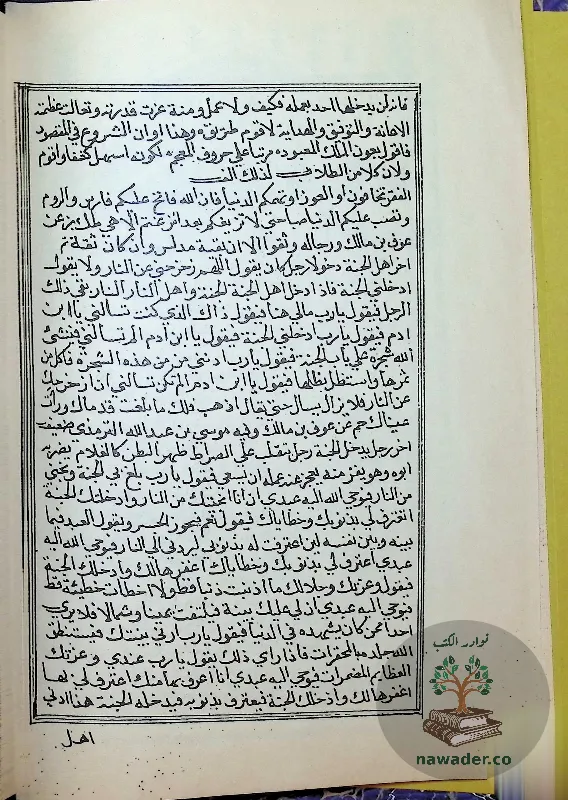 فإنه لن يدخلها احد بعمله فكيف ولا عمل ومنة عزت قدرته وتعالت عظمته
الاعانة والتوفيق والهداية لاقوم طريق وهذا اوان الشروع في المقصود
فاقول بعون الملك المعبود مرتبا على حروف المعجم لكونه اسهل كشفا واقوم
ولان كلا من الطلاب لذلك الف
الفقر تخافون او العوز او تهمكم الدنيا فان الله فاتح عليكم فارس والروم
وتصب عليكم الدنيا صبا حتى لا يزيغكم بعد ان زغتم الا هي طب عن
عوف بن مالك ورجاله وثقوا الا ان بقية مدلس وان كان ثقة
اخر اهل الجنة دخولا رجل كان يقول اللهم زحزحني عن النار ولا يقول
ادخلني الجنة فاذا دخل اهل الجنة الجنة واهل النار النار بقي ذلك
الرجل فيقول يا رب مالي هنا فيقول ذاك الذي كنت تسالني يا ابن
ادم فيقول يا رب ادخلني الجنة فيقول يا ابن ادم الم تسالني فينشئ
الله شجرة على باب الجنة فيقول يا رب ادنني من هذه الشجرة فاكل من
ثمرها واستظل بظلها فيقول يا ابن ادم الم تكن تسالني ان ازحزحك
عن النار فلا يزال يسال حتى يقال اذهب فلك ما بلغت قدماك ورات
عيناك عن عوف بن مالك وفيه موسى بن عبد الله الترمذي ضعيف
اخر رجل يدخل الجنة رجل يتقلب على الصراط ظهر البطن كالغلام يضربه
ابوه وهو يفر منه يعجز عنه عمله ان يسعى فيقول يا رب بلغ بي الجنة ونجني
من النار فيوحي الله اليه عبدي ان انا انجيتك من النار وادخلتك الجنة
اتعترف لي بذنوبك وخطاياك فيقول نعم فيجوز الجسر ويقول العبد فيما
بينه وبين نفسه لين اعترفت له بذنوبي ليردني الى النار فيوحي الله اليه
عبدي اعترف لي بذنوبك وخطاياك اغفرها لك وادخلك الجنة
فيقول وعزتك وجلالك ما اذنبت ذنبا قط ولا اخطات خطيئة قط
فيوحي اليه عبدي ان لي عليك بينة فيلتفت يمينا وشمالا فلا يرى
احدا ممن كان يشهده في الدنيا فيقول يا رب ارني بينتك فيستنطق
الله جلده بالمحقرات فاذا راى ذلك يقول يا رب عندي وعزتك
العظايم المضمرات فيوحي اليه عبدي انا اعرف بها منك اعترف لي بها
اغفرها لك وادخلك الجنة فيعترف بذنوبه فيدخله الجنة هذا ادنى
اهل
نوادر الكتب
nawader.co